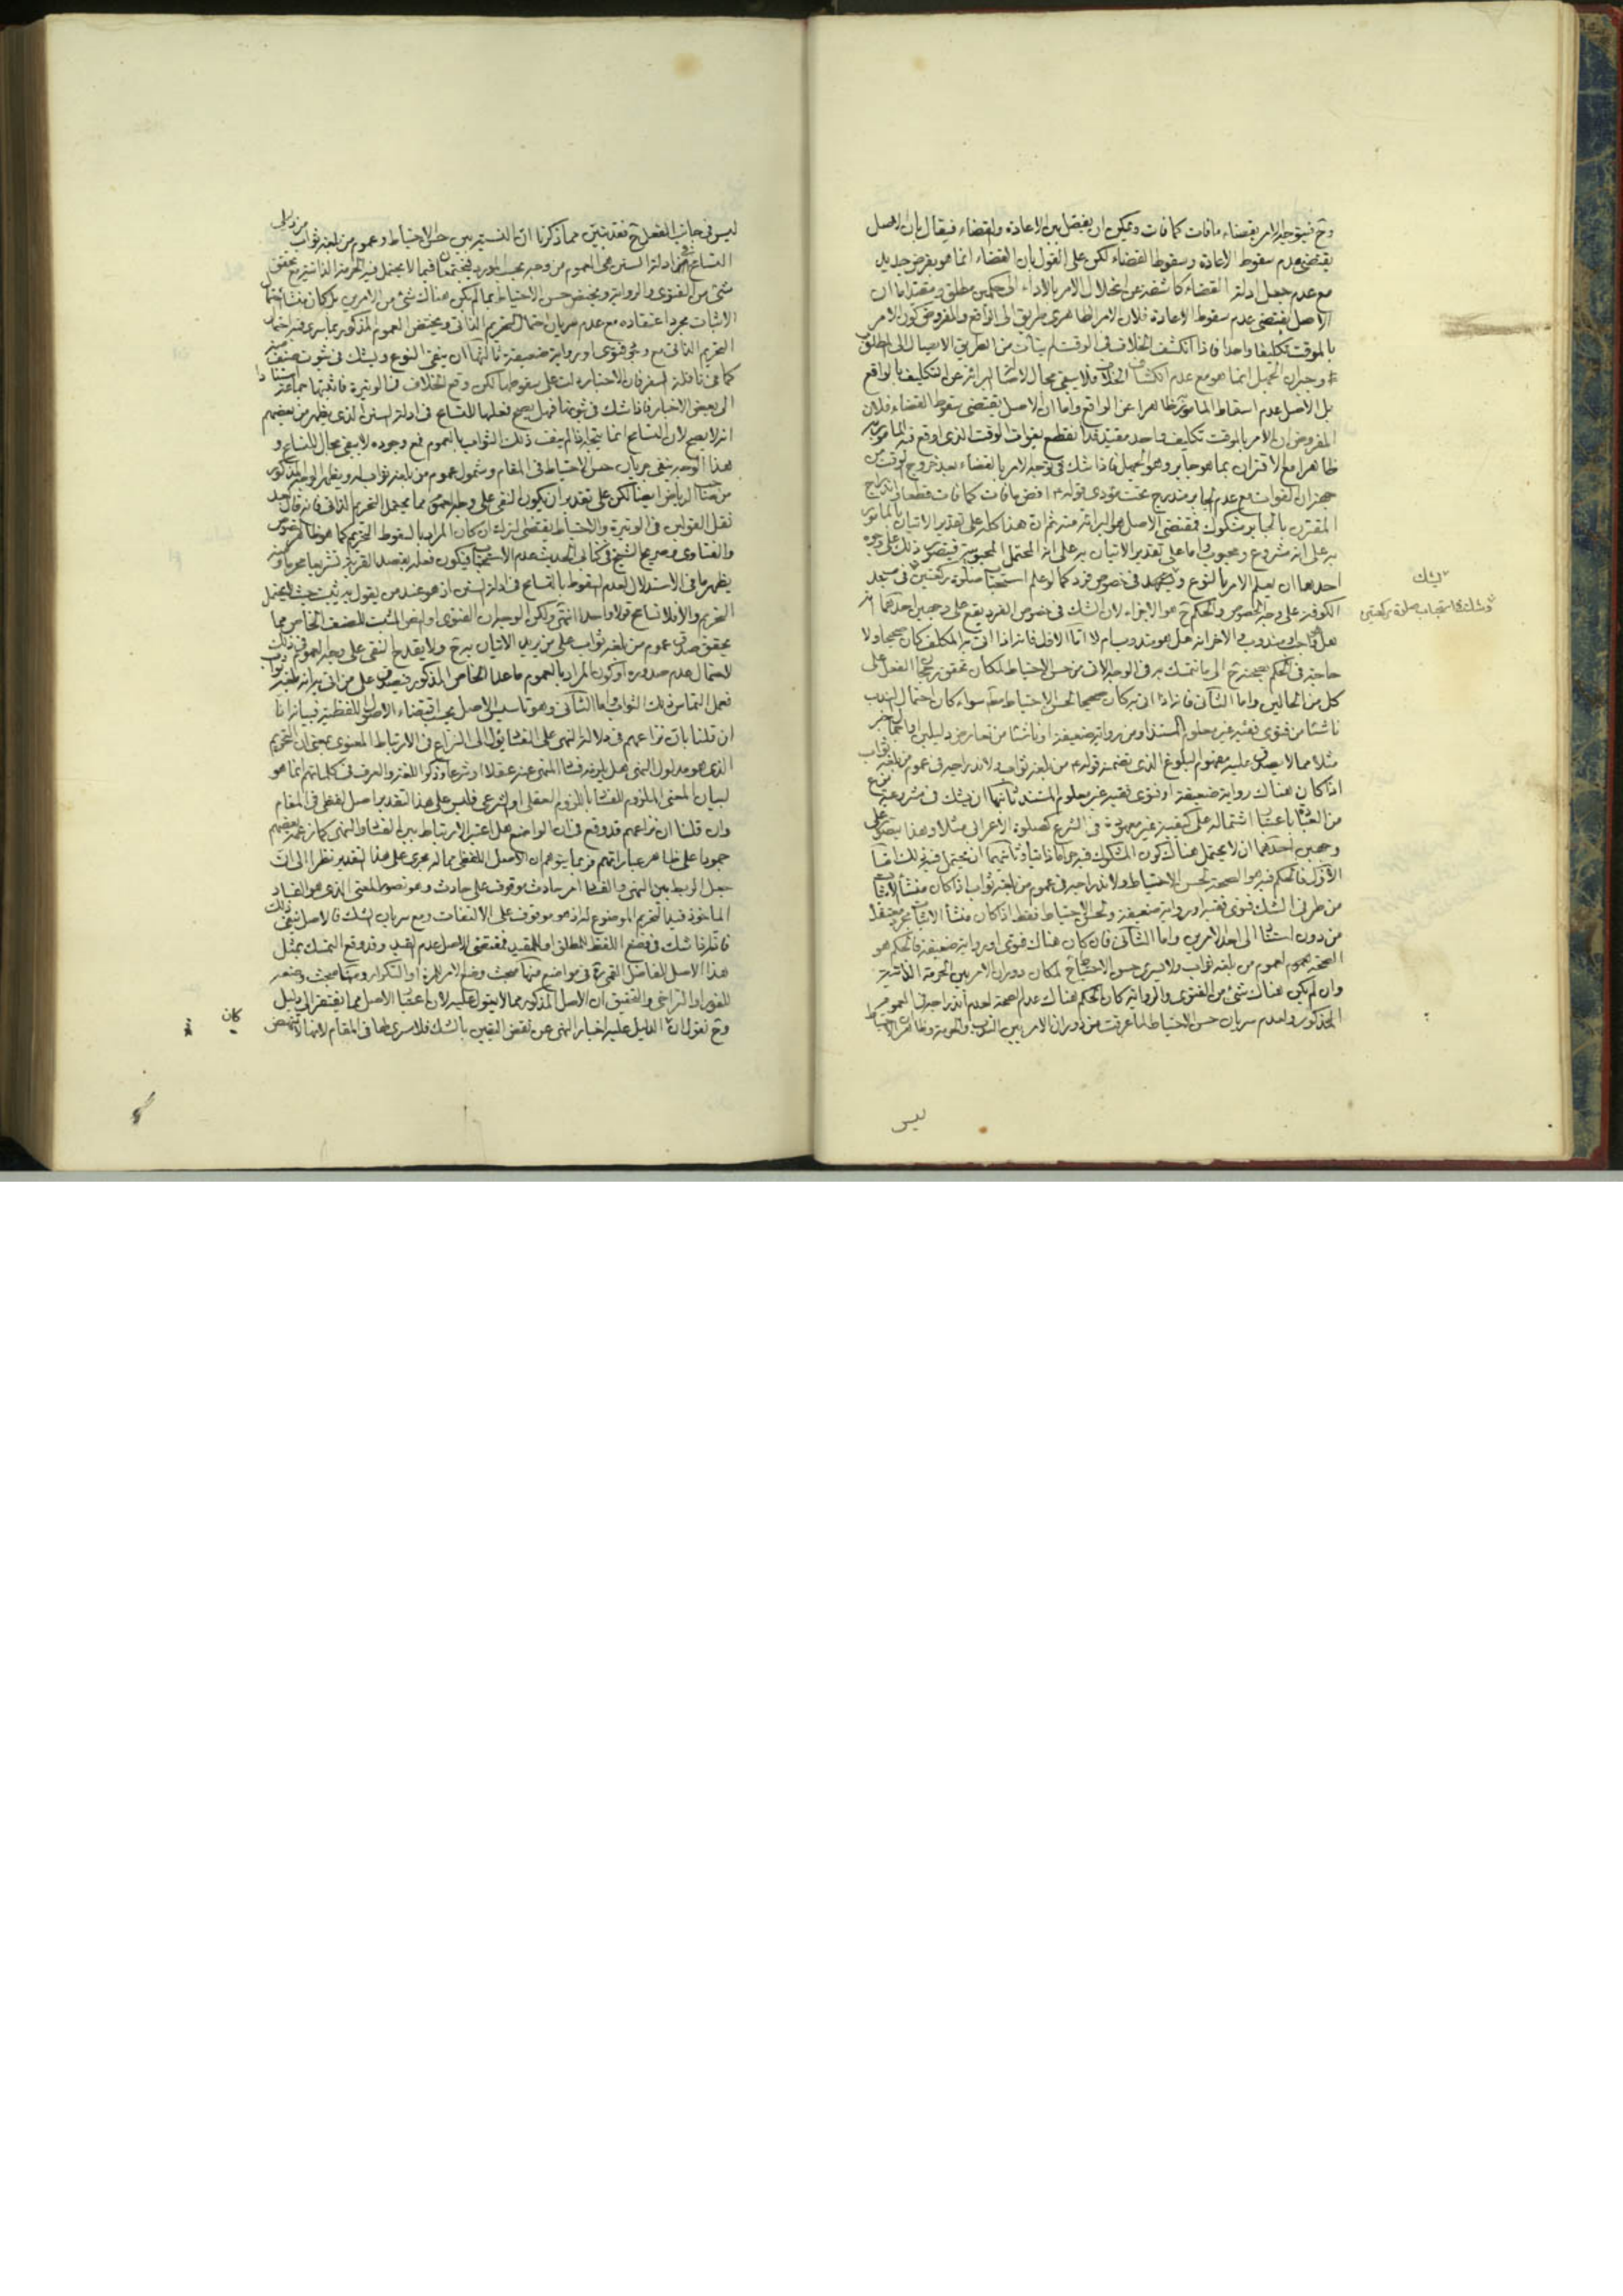 وح فيتوجه الامر بقضاء ما فات كما فات ويمكن ان يفصل بين الاعادة والقضاء فيقال بان الاصل
يقتضى عدم سقوط الاعادة وسقوط القضاء لكن على القول بان القضاء انما هو بفرض جديد
مع عدم جعل ادلة القضاء كاشفة عن انحلال الامر بالاداء الى حكمين مطلق ومقيد اما ان
الاصل يقتضى عدم سقوط الاعادة فلان الامر الظاهرى طريق الى الواقع والمفروض كون الامر
بالموقت تكليفا واحدا فاذا انكشف الخلاف فى الوقت لم يتات من الطريق الايصال الى المطلق
وجبران الجهل انما هو مع عدم انكشاف الخلاف فلا يبقى مجال لاصالة البرائة عن التكليف بالواقع
بل الاصل عدم اسقاط المامور به ظاهرا عن الواقع واما ان الاصل يقتضى سقوط القضاء فلان
المفروض ان الامر بالموقت تكليف واحد مقيد فقد انقطع بفوات الوقت الذى اوقع فيه المامور به
ظاهرا مع الاقتران بما هو جابر وهو الجهل فاذا شك فى توجه الامر بالقضاء بعد خروج الوقت من
جهة ان الفوات مع عدم الجابر مندرج تحت مؤدى قوله اقض ما فات كما فات قطعا واندراج
المقترن بالجابر مشكوك فمقتضى الاصل هو البرائة منه ثم ان هذا كله على تقدير الاتيان بالمامور
به على انه مشروع ومحبوب واما على تقدير الاتيان به على انه المحتمل المحبوبية فيتصور ذلك على وجوه
احدها ان يعلم الامر بالنوع و فى خصوص فرد كما لو علم استحباب صلوة ركعتين فى مسجد
الكوفة على وجه الخصوص والحكم ح هو الاجزاء لان الشك فى خصوص الفرد يقع على وجهين احدهما انه
هل واجب او مندوب والاخر انه هل هو مندوب ام لا اما الاول فانه اذا اتى به المكلف كان صحيحا ولا
حاجة فى الحكم بصحته ح الى ما يتمسك به فى الوجه الاتى من حسن الاحتياط لمكان تحقق رجحان الفعل على
كل من الحالين واما الثانى فانه اذا اتى به كان صحيحا لحسن الاحتياط معه سواء كان احتمال الندب
ناشئا من فتوى فقيه غير معلوم المستند او من رواية ضعيفة او ناشئا من تعارض دليلين او اجمال خبر
مثلا مما لا يصدق عليه مفهوم البلوغ الذى تضمنه قوله من بلغه ثواب ولاندراجه فى عموم من بلغه ثواب
اذا كان هناك رواية ضعيفة او فتوى فقيه غير معلوم المستند ثانيها ان يشك فى مشروعية نوع
من العبادة باعتبار اشتماله على كيفية غير معهودة فى الشرع كصلوة الاعرابى مثلا وهذا يتصور على
وجهين احدهما ان لا يحتمل هناك كون المشكوك فيه حراما ذاتيا وثانيهما ان يحتمل فيه ذلك اما
الاول فالحكم فيه هو الصحة لحسن الاحتياط ولاندراجه فى عموم من بلغه ثواب اذا كان منشأ الاثبات
من طرفى الشك فتوى فقيه او رواية ضعيفة ولحسن الاحتياط فقط اذا كان منشأ الاثبات مجرد اعتقاد
من دون استناد الى احد الامرين واما الثانى فان كان هناك فتوى او رواية ضعيفة فالحكم هو
الصحة لعموم من بلغه ثواب ولا يجرى حسن الاحتياط ح لمكان دوران الامر بين الحرمة الذاتية
وان لم يكن هناك شئ من الفتوى والرواية كان الحكم هناك عدم الصحة لعدم اندراجه فى العموم
المذكور ولعدم سريان حسن الاحتياط لما عرفت من دوران الامر بين الندب والحرمة وظاهر ان الاحتياط
يشك
وشك فى استحباب صلوة ركعتين
ليس
ليس فى جانب الفعل ح فقد تبين مما ذكرنا ان النسبة بين حسن الاحتياط وعموم من بلغه ثواب
التسامح فى ادلة السنن هى العموم من وجه بحسب المورد فيجتمعان فيما لا يحتمل فيه الحرمة الذاتية مع تحقق
شئ من الفتوى والرواية ويختص حسن الاحتياط بما لم يكن هناك شئ من الامرين بل كان منشأ
الاثبات مجرد اعتقاده مع عدم سريان احتمال التحريم الذاتى ويختص العموم المذكور بما سرى فيه احتمال
التحريم الذاتى مع وجود فتوى او رواية ضعيفة ثالثها ان ينتفى النوع ويشك فى ثبوت صنف منه
كما فى نافلة السفر فان الاخبار دلت على سقوطها لكن وقع الخلاف فى الوتيرة فاثبتها جماعة استنادا
الى بعض الاخبار فاذا شك فى ثبوتها فهل يصح فعلها للتسامح فى ادلة السنن الذى يظهر من بعضهم
انه لا يصح لان التسامح انما يتجه اذا لم ينف ذلك الثواب بالعموم فمع وجوده لا يبقى مجال للتسامح و
هذا الوجه ينفى جريان حسن الاحتياط فى المقام وشمول عموم من بلغه ثواب له ويظهر الوجه المذكور
من صاحب الرياض ايضا لكن على تقدير ان يكون النفى على وجه العموم مما يحتمل التحريم الذاتى فانه قال بعد
نقل القولين فى الوتيرة والاحتياط يقتضى الترك ان كان المراد بالسقوط التحريم كما هو ظاهر النصوص
والفتاوى وصريح الشيخ فى كتابى الحديث عدم الاستحباب فيكون فعله بقصد القربة تشريعا محرما ومنه
يظهر ما فى الاستدلال لعدم السقوط بالتسامح فى ادلة السنن اذ هو عند من يقول به يثبت حيث لا يحتمل
التحريم والا فلا تسامح قولا واحدا انتهى ولكن الوجه ان الفتوى او النص المثبت للصنف الخاص مما
يحقق صدق عموم من بلغه ثواب على من يريد الاتيان به ح ولا يقدح النفى على وجه العموم فى ذلك
لاحتمال عدم صدوره او كون المراد بالعموم ما عدا الخاص المذكور فيصدق على من اتى به انه بلغه ثواب
فعمل التماس ذلك الثواب واما الثانى وهو تاسيس الاصل بحسب اقتضاء الاصول اللفظية فبيانه انا
ان قلنا بان نزاعهم فى دلالة النهى على الفساد يؤل الى النزاع فى الارتباط المعنوى بمعنى ان التحريم
الذى هو مدلول النهى هل يلزمه فساد المنهى عنه عقلا او شرعا وذكر اللغة والعرف فى كلماتهم انما هو
لبيان المعنى الملزوم للفساد باللزوم العقلى او الشرعى فليس على هذا التقدير اصل لفظى فى المقام
وان قلنا ان نزاعهم قد وقع فى ان الواضع هل اعتبر الارتباط بين الفساد والنهى كما زعمه بعضهم
جمودا على ظاهر عباراتهم فربما يتوهم ان الاصل اللفظى مما له مجرى على هذا التقدير نظرا الى ان
جعل الربط بين النهى والفساد امر حادث موقوف على حادث وهو تصور المعنى الذى هو الفساد
الماخوذ قيدا لتحريم الموضوع له اذ هو موقوف على الالتفات ومع سريان الشك فالاصل ينفى ذلك
فاذا شك فى وضع اللفظ للمطلق او للمقيد فمقتضى الاصل عدم القيد وقد وقع التمسك بمثل
هذا الاصل للفاضل القمى ره فى مواضع منها مبحث وضع الامر للمرة او التكرار ومنها مبحث وضعه
للفور او التراخى والتحقيق ان الاصل المذكور مما لا يعول عليه لان اعتبار الاصل مما يفتقر الى دليل
وح نقول ان الدليل عليه اخبار النهى عن نقض اليقين بالشك فلا مسرى لها فى المقام لانها لا تنهض
كان